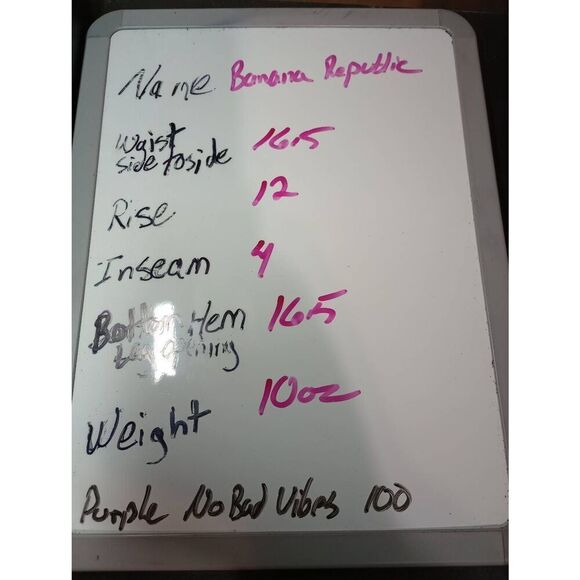 Name Banana Republic
Waist 16.5
side toside
Rise 12
Inseam 4
Bottom Hem 16.5
Leg opening
Weight 10oz
Purple No Bad Vibes 100